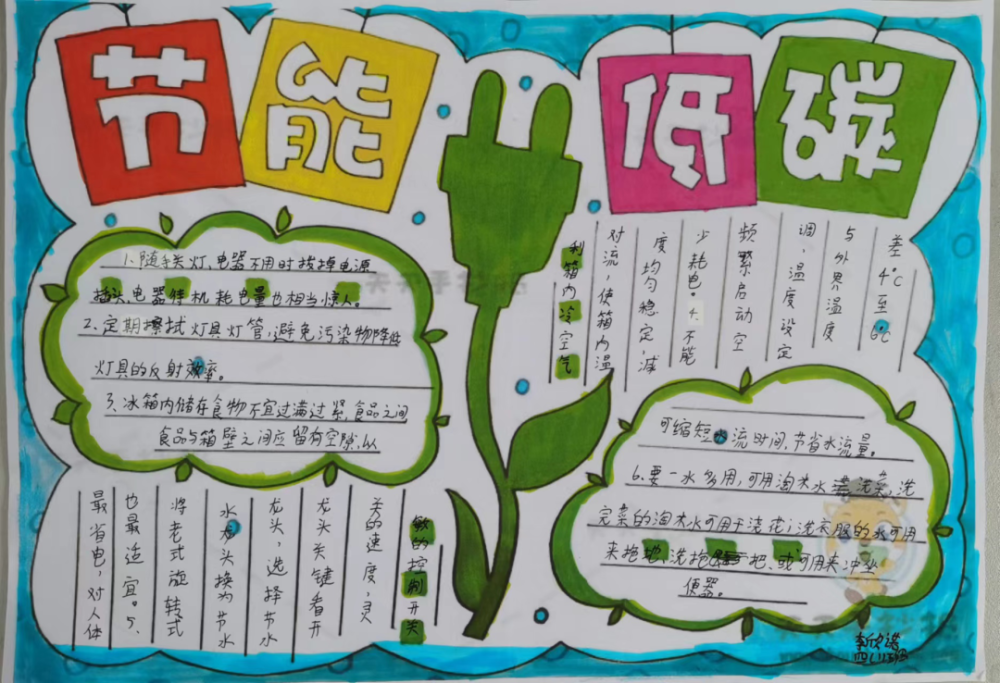 节能低碳
1、随手关灯、电器不用时拔掉电源
插头,电器待机耗电量也相当惊人。
2、定期擦拭灯具灯管,避免污染物降低
灯具的反射效率。
3、冰箱内储存食物不宜过满过紧,食品之间
食品与箱壁之间应留有空隙,以
利箱内冷空气
对流,使箱内温
度均匀稳定减
少耗电。4.不能
频繁启动空
调,温度设定
与外界温度
差4℃至6℃
最省电,对人体
也最适宜。5、
将老式旋转式
水龙头换为节水
龙头,选择节水
龙头关键看开
关的速度,灵
敏的控制开关
可缩短水流时间,节省水流量。
6.要一水多用,可用淘米水洗菜,洗
完菜的淘米水可用于浇花;洗衣服的水可用
来拖地、洗拖把、或可用来冲坐
便器。
李欣诺